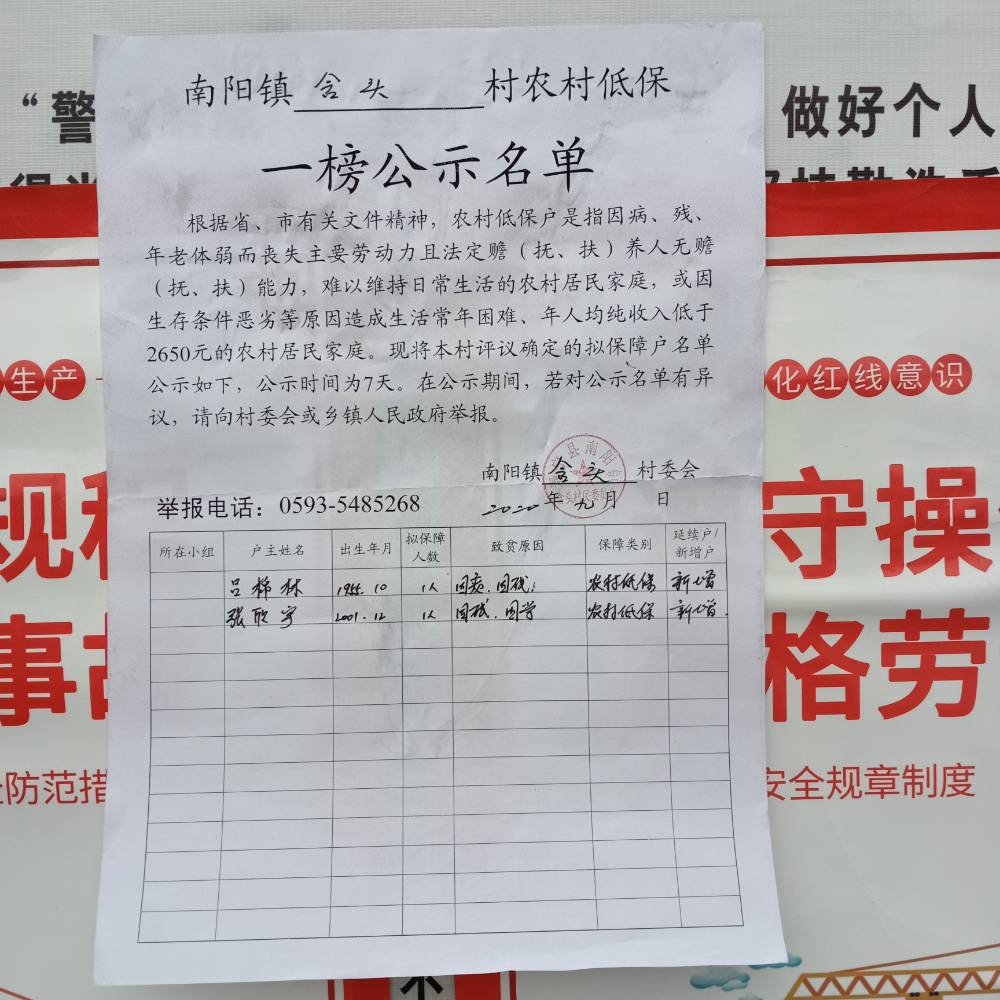 南阳镇 含头 村农村低保
一榜公示名单
根据省、市有关文件精神，农村低保户是指因病、残、
年老体弱而丧失主要劳动力且法定赡（抚、扶）养人无赡
（抚、扶）能力，难以维持日常生活的农村居民家庭，或因
生存条件恶劣等原因造成生活常年困难、年人均纯收入低于
2650元的农村居民家庭。现将本村评议确定的拟保障户名单
公示如下，公示时间为7天。在公示期间，若对公示名单有异
议，请向村委会或乡镇人民政府举报。
南阳镇 含头 村委会
举报电话：0593-5485268
2020年九月 日
所在小组 户主姓名 出生年月 拟保障人数 致贫原因 保障类别 延续户/新增户
吕 林 10 1人 因残 农村低保 新增
张欣宇 2001.12 1人 因残、因学 农村低保 新增
“警
做好个人
生产
化红线意识
规
守操
事故
格劳
防范措
安全规章制度